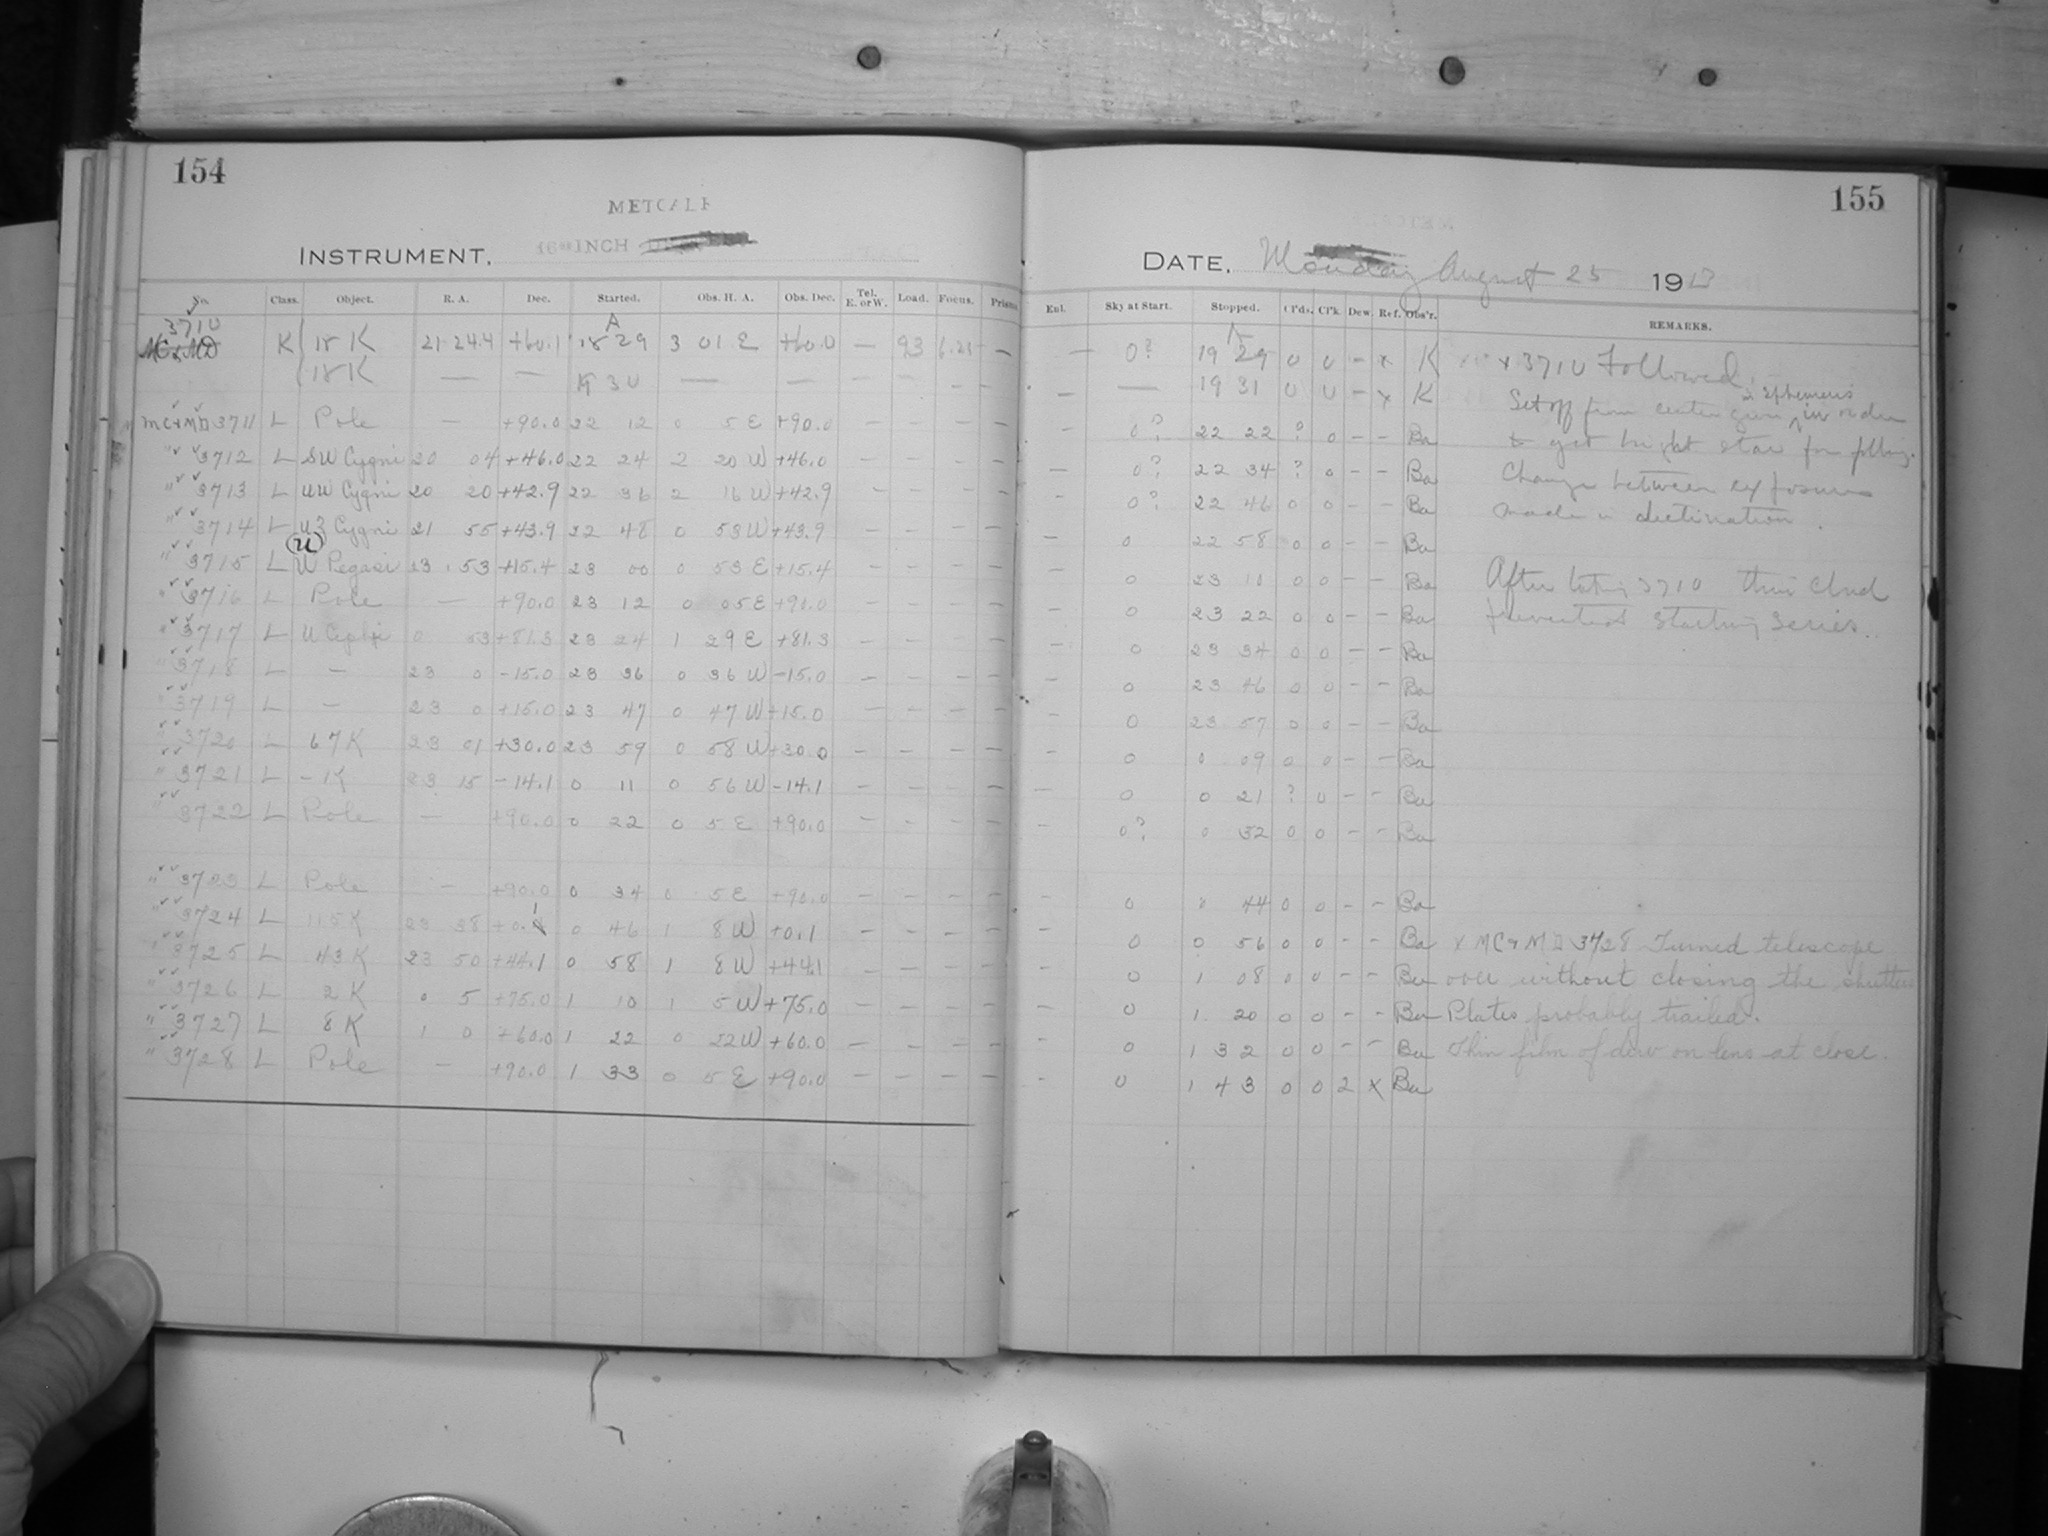 154
METCALF
INSTRUMENT, 16 INCH
No. Class. Object. R. A. Dec. Started. Obs. H. A. Obs. Dec. Tel. E. or W. Load. Focus. Prisms
3710 K 18 K 21 24.4 +60.1 18 29 3 01 E +60.0 — 93 —
MC & MD
18 K — — 30 — — — — — —
MC & MD 3711 L Pole — +90.0 22 12 0 5 E +90.0 — — — —
" 3712 L SW Cygni 20 04 +46.0 22 24 2 20 W +46.0 — — — —
" 3713 L UW Cygni 20 20 +42.9 22 36 2 16 W +42.9 — — — —
" 3714 L UZ Cygni 21 55 +43.9 22 48 0 53 W +43.9 — — — —
" 3715 L U Pegasi 23 53 +15.4 23 00 0 53 E +15.4 — — — —
" 3716 L Pole — +90.0 23 12 0 05 E +90.0 — — — —
" 3717 L U Cephei 0 53 +81.3 23 24 1 29 E +81.3 — — — —
" 3718 L — 23 0 -15.0 23 36 0 36 W -15.0 — — — —
" 3719 L — 23 0 +15.0 23 47 0 47 W +15.0 — — — —
" 3720 L 67 K 23 01 +30.0 23 59 0 58 W +30.0 — — — —
" 3721 L - 1K 23 15 -14.1 0 11 0 56 W -14.1 — — — —
" 3722 L Pole — +90.0 0 22 0 5 E +90.0 — — — —
" 3723 L Pole — +90.0 0 34 0 5 E +90.0 — — — —
" 3724 L 115 K 23 38 +0.1 0 46 1 8 W +0.1 — — — —
" 3725 L 43 K 23 50 +44.1 0 58 1 8 W +44.1 — — — —
" 3726 L 2 K 0 5 +75.0 1 10 1 5 W +75.0 — — — —
" 3727 L 8 K 1 0 +60.0 1 22 0 22 W +60.0 — — — —
" 3728 L Pole — +90.0 1 33 0 5 E +90.0 — — — —
155
DATE, Monday August 25 1913
Ent. Sky at Start. Stopped. Cl'ds. Cl'k. Dew. Ref. Obs'r. REMARKS.
— 0? 19 29 0 0 — x K x 3710 Followed.
— — 19 31 0 0 — x K Set off from center given in Ephemeris in order
— 0? 22 22 ? 0 — — Ba to get bright star for follwg.
— 0? 22 34 ? 0 — — Ba Change between exposures
— 0? 22 46 0 0 — — Ba made in declination.
— 0 22 58 0 0 — — Ba
— 0 23 10 0 0 — — Ba After taking 3710 thin cloud
— 0 23 22 0 0 — — Ba prevented starting series.
— 0 23 34 0 0 — — Ba
— 0 23 46 0 0 — — Ba
— 0 23 57 0 0 — — Ba
— 0 0 09 0 0 — — Ba
— 0 0 21 ? 0 — — Ba
— 0? 0 32 0 0 — — Ba
— 0 0 44 0 0 — — Ba
— 0 0 56 0 0 — — Ba x MC & MD 3728 Turned telescope
— 0 1 08 0 0 — — Ba over without closing the shutters
— 0 1 20 0 0 — — Ba Plates probably trailed.
— 0 1 32 0 0 — — Ba Thin film of dew on lens at close.
— 0 1 43 0 0 2 x Ba